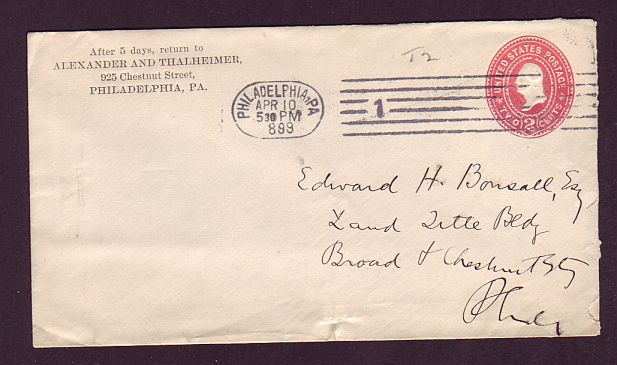 After 5 days, return to
ALEXANDER AND THALHEIMER,
925 Chestnut Street,
PHILADELPHIA, PA.
T2
PHILADELPHIA, PA
APR 10
530 PM
899
1
UNITED STATES POSTAGE
TWO 2 CENTS
Edward H. Bonsall, Esq
Land Title Bldg
Broad & Chestnut Sts
Phila